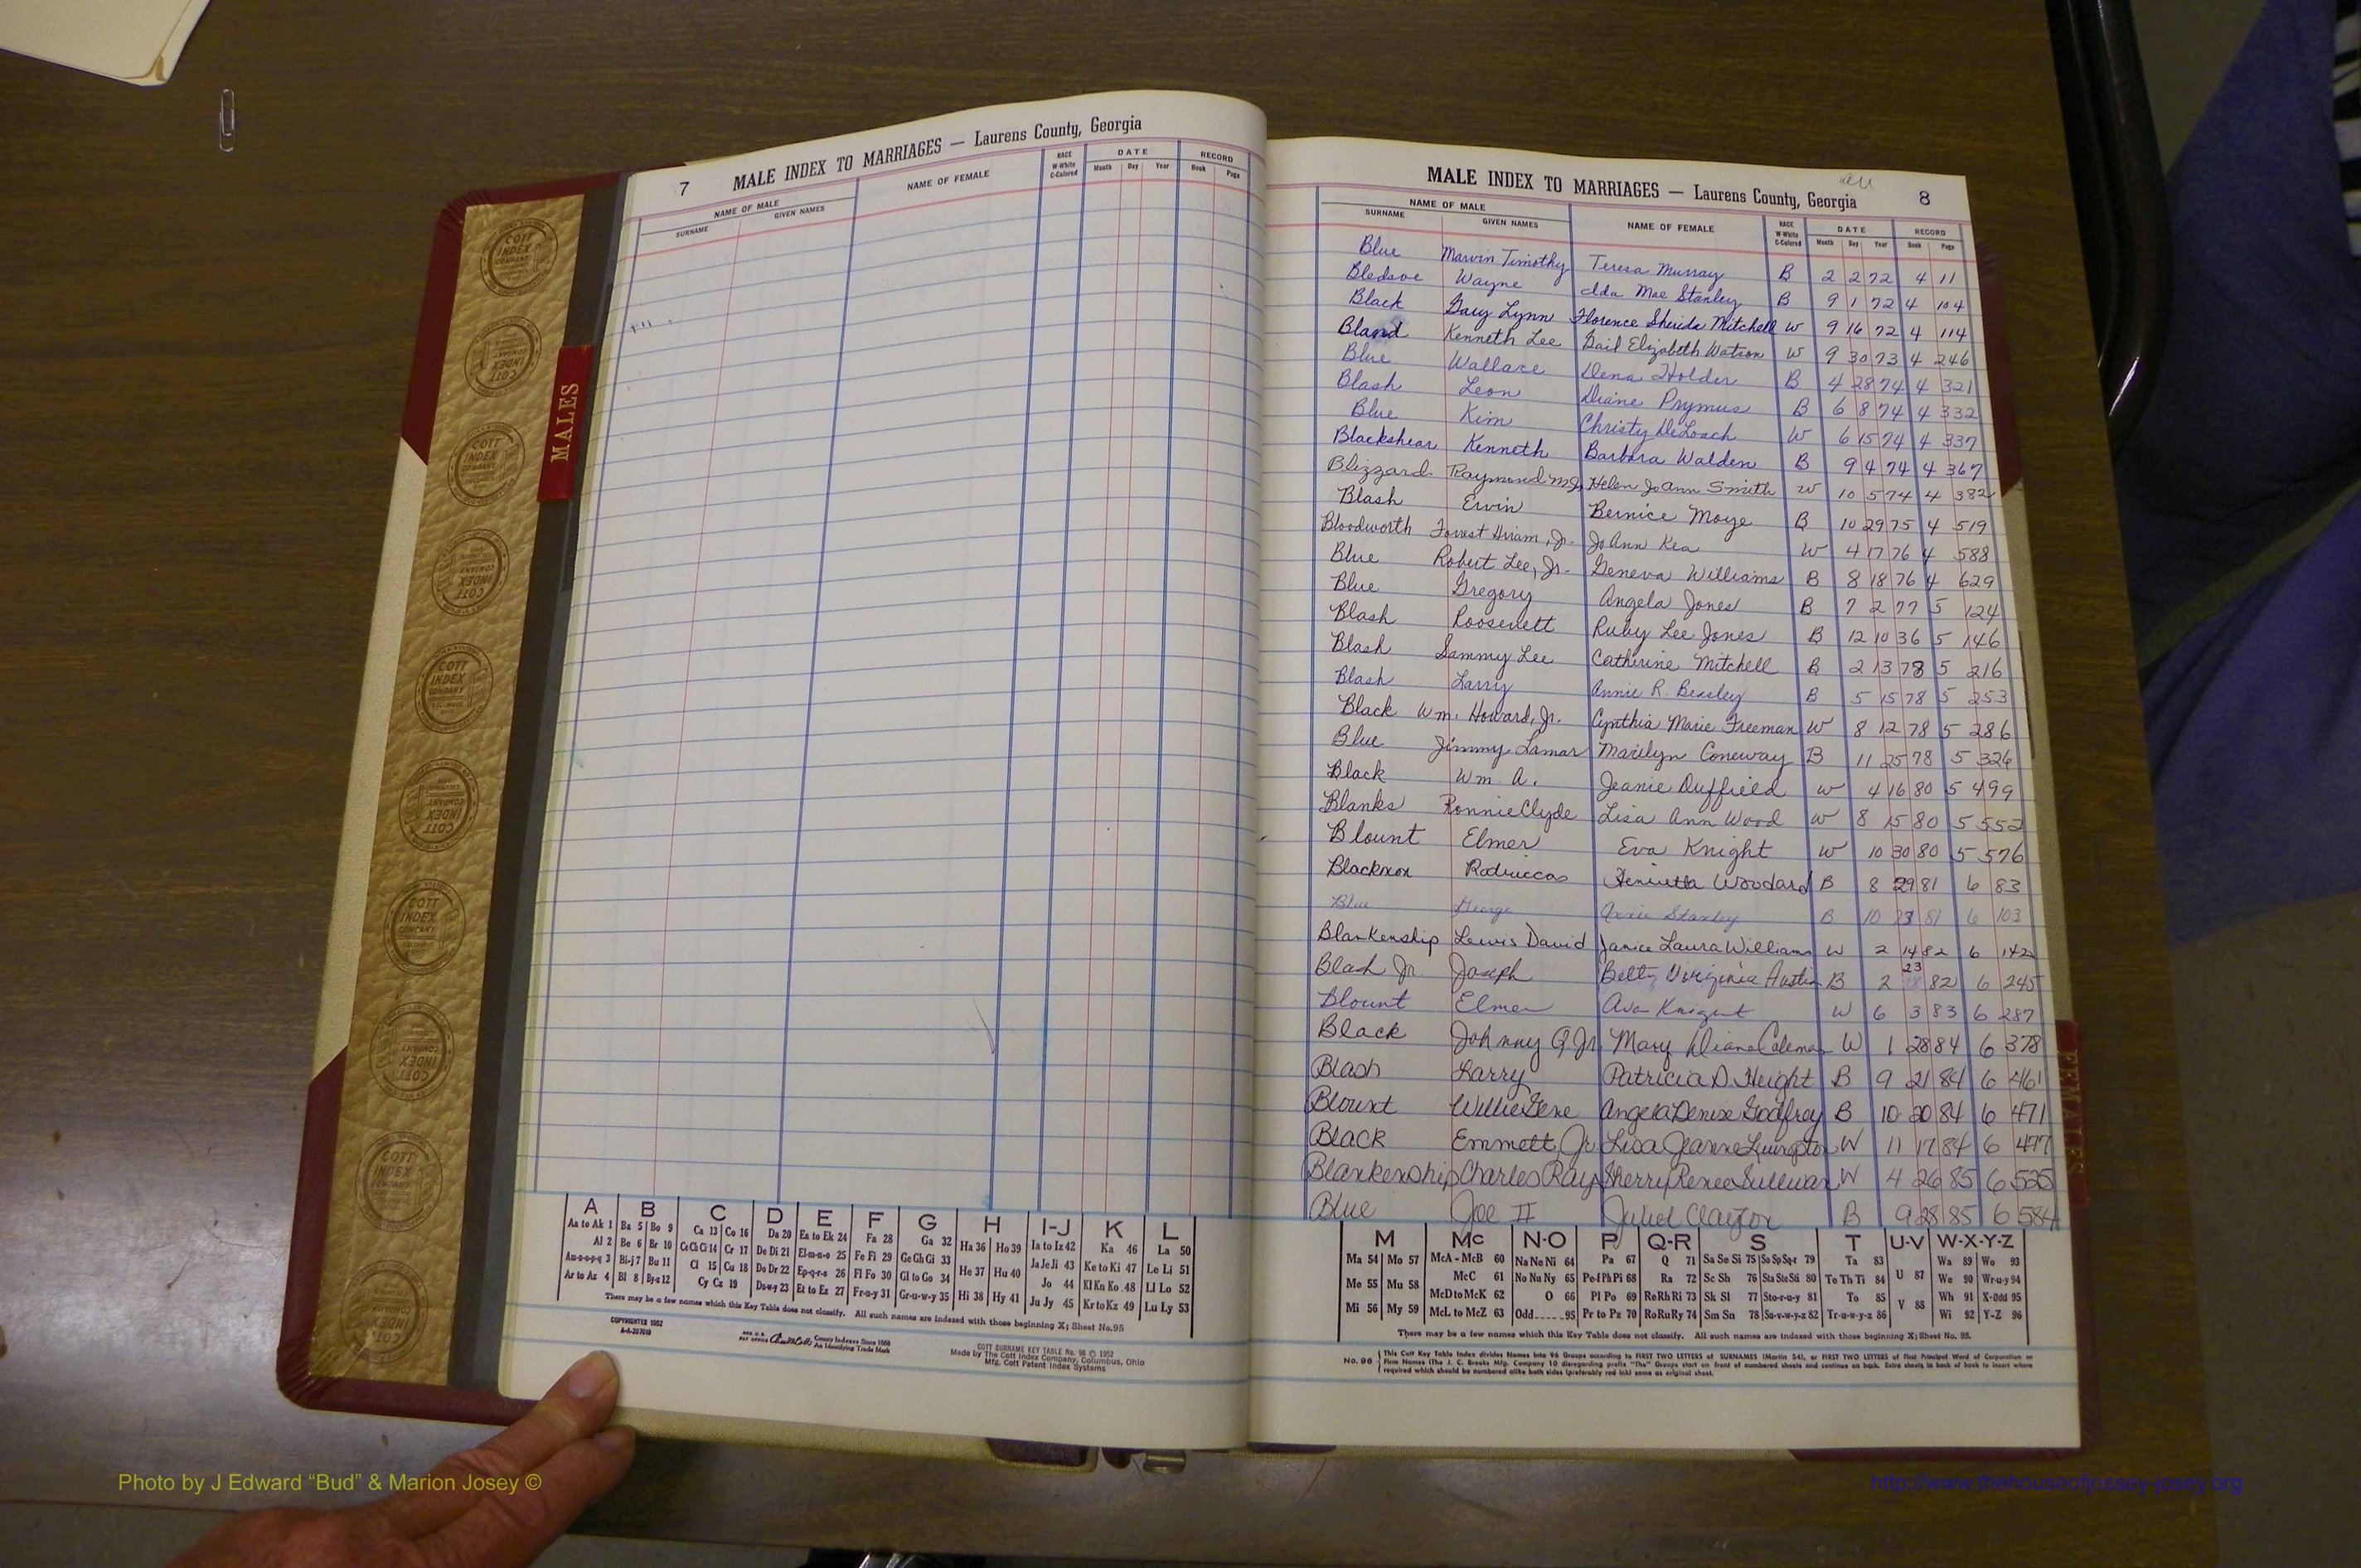 7 MALE INDEX TO MARRIAGES — Laurens County, Georgia
NAME OF MALE NAME OF FEMALE RACE W-White C-Colored DATE RECORD
SURNAME GIVEN NAMES Month Day Year Book Page
MALES
MALE INDEX TO MARRIAGES — Laurens County, Georgia 8
NAME OF MALE NAME OF FEMALE RACE W-White C-Colored DATE RECORD
SURNAME GIVEN NAMES Month Day Year Book Page
Blue Marvin Timothy Teresa Murray B 2 2 72 4 11
Bledsoe Wayne Ida Mae Stanley B 9 1 72 4 104
Black Gary Lynn Florence Sherida Mitchell W 9 16 72 4 114
Bland Kenneth Lee Gail Elizabeth Watson W 9 30 73 4 246
Blue Wallace Dena Holder B 4 28 74 4 321
Blash Leon Diane Prymus B 6 8 74 4 332
Blue Kim Christy DeLoach W 6 15 74 4 337
Blackshear Kenneth Barbara Walden B 9 4 74 4 367
Blizzard Raymond Helen JoAnn Smith W 10 5 74 4 382
Blash Ervin Bernice Moye B 10 29 75 4 519
Bloodworth Forrest Hiram, Jr. JoAnn Kea W 4 17 76 4 588
Blue Robert Lee, Jr. Geneva Williams B 8 18 76 4 629
Blue Gregory Angela Jones B 7 2 77 5 124
Blash Roosevelt Ruby Lee Jones B 12 10 36 5 146
Blash Sammy Lee Catherine Mitchell B 2 13 78 5 216
Blash Larry Annie R. Beasley B 5 15 78 5 253
Black Wm. Howard, Jr. Cynthia Marie Freeman W 8 12 78 5 286
Blue Jimmy Lamar Marilyn Coneway B 11 25 78 5 326
Black Wm. A. Jeanie Duffield W 4 16 80 5 499
Blanks Ronnie Clyde Lisa Ann Wood W 8 15 80 5 552
Blount Elmer Eva Knight W 10 30 80 5 576
Blackmon Henrietta Woodard B 8 29 81 6 83
Blue George Stanley B 10 23 81 6 103
Blankenship Lewis David Janice Laura Williams W 2 14 82 6 142
Blash Jr Joseph Betty Virginia Austin B 2 23 82 6 245
Blount Elmer Ava Knight W 6 3 83 6 287
Black Johnny Q Jr Mary Diane Coleman W 1 28 84 6 378
Blash Larry Patricia D. Height B 9 21 84 6 461
Blount Willie Gene Angela Denise Godfrey B 10 20 84 6 471
Black Emmett, Jr Lisa Jeanne Livingston W 11 17 84 6 477
Blankenship Charles Ray Sherry Renee Sullivan W 4 26 85 6 525
Blue Joe II Juliet Claxton B 9 28 85 6 584
A B C D E F G H I-J K L
Aa to Ak 1 Ba 5 Bo 9 Ca 13 Co 16 Da 20 Ea to Ek 24 Fa 28 Ga 32 Ha 36 Ho 39 Ia to Iz 42 Ka 46 La 50
Al 2 Be 6 Br 10 Ce Ch Ci 14 Cr 17 De Di 21 El-m-n-o 25 Fe Fi 29 Ge Gh Gi 33 He 37 Hu 40 Ja Je Ji 43 Ke to Ki 47 Le Li 51
Au-s-o-p-q 3 Bi-j 7 Bu 11 Cl 15 Cu 18 Do Dr 22 Ep-q-r-s 26 Fl Fo 30 Gl to Go 34 Hi 38 Hy 41 Jo 44 Kl Kn Ko 48 Ll Lo 52
Ar to Az 4 Bl 8 By-z 12 Cy Cz 19 Du-w-y 23 Et to Ez 27 Fr-u-y 31 Gr-u-w-y 35 Ju Jy 45 Kr to Kz 49 Lu Ly 53
There may be a few names which this Key Table does not classify. All such names are indexed with those beginning X; Sheet No. 95
COPYRIGHTED 1952
County Indexes Since 1888
An Identifying Trade Mark
COTT SURNAME KEY TABLE No. 96 © 1952
Made by The Cott Index Company, Columbus, Ohio
Mfg. Cott Patent Index Systems
M Mc N-O P Q-R S T U-V W-X-Y-Z
Ma 54 Mo 57 McA - McB 60 Na Ne Ni 64 Pa 67 Q 71 Sa Se Si 75 So Sp Sq-r 79 Ta 83 U 87 Wa 89 Wo 93
Me 55 Mu 58 McC 61 No Nu Ny 65 Pe-f Ph Pi 68 Ra 72 Sc Sh 76 Sta Ste Sti 80 Te Th Ti 84 We 90 Wr-u-y 94
McD to McK 62 O 66 Pl Po 69 Re Rh Ri 73 Sk Sl 77 Sto-r-u-y 81 To 85 V 88 Wh 91 X-Odd 95
Mi 56 My 59 McL to McZ 63 Odd 95 Pr to Pz 70 Ro Ru Ry 74 Sm Sn 78 Su-v-w-y-z 82 Tr-u-w-y-z 86 Wi 92 Y-Z 96
There may be a few names which this Key Table does not classify. All such names are indexed with those beginning X; Sheet No. 95.
No. 96 This Cott Key Table Index divides Names into 96 Groups according to FIRST TWO LETTERS of SURNAMES (Martin 54), or FIRST TWO LETTERS of First Principal Word of Corporation or
Firm Names (The J. C. Brooks Mfg. Company 10 disregarding prefix "The" Groups start on front of numbered sheets and continue on back. Extra sheets in back of book to insert where
required which should be numbered alike both sides (preferably red ink) same as original sheet.
COTT INDEX COMPANY
FEMALES
Photo by J Edward “Bud” & Marion Josey ©
http://www.thehouseofjossey-josey.org